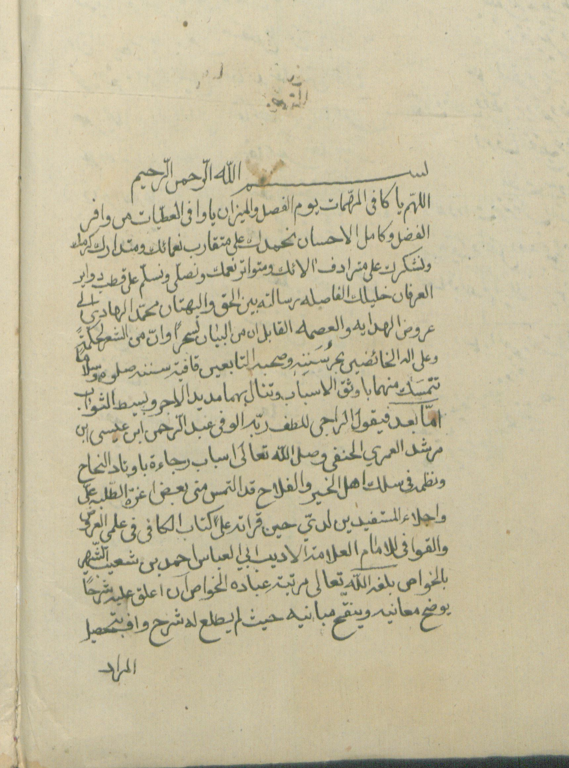 بسم الله الرحمن الرحيم
اللهم يا كافي المهمات يوم الفصل والميزان يا وافي العطيات من وافر
الفضل وكامل الاحسان نحمدك على متقارب نعمائك ومتدارك كرمك
ونشكرك على مترادف آلائك ومتواتر نعمك ونصلي ونسلم على قطب دواير
العرفان خليلك الفاصله رسالته بين الحق والبهتان محمد الهادي الى
عروض الهدايه والعصمه القايل ان من البيان لسحرا وان من الشعر لحكمة
وعلى اله الخائضين بحر سننه وصحبه التابعين قافية سننه صلوة وسلاما
نتمسك منهما باوثق الاسباب وننال بهما مديد الاجر وبسيط الثواب
اما بعد فيقول الراجي للطف ربه الوفي عبد الرحمن ابن عيسى ابن
مرشد العمري الحنفي وصل الله تعالى اسباب رجاءة باوتاد النجاح
ونظمه في سلك اهل الخير والفلاح قد التمس مني بعض اعزة الطلبه علي
واجلاء المستفيدين لدي حين قراته علي كتاب الكافي في علمي العروض
والقوافي للامام العلامة الاديب ابي العباس احمد بن شعيب الشهير
بالخواص بلغه الله تعالى مرتبة عباده الخواص ان اعلق عليه شرحا
يوضح معانيه وينقح مبانيه حيث لم يطلع له شرح واف بتحصيل
المراد